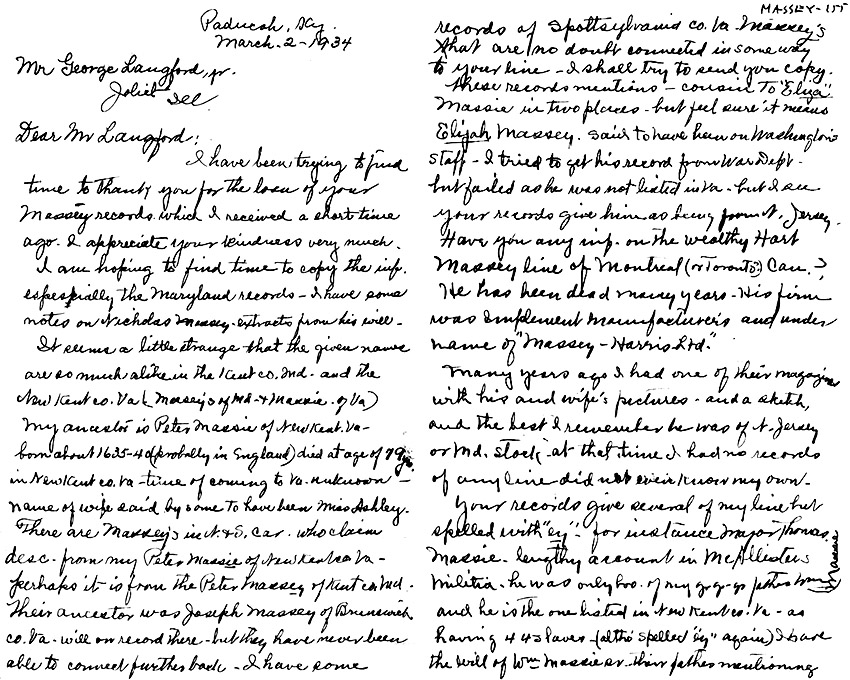 MASSEY-155
Paducah, Ky.
March-2-1934
Mr George Langford, jr.
Joliet Ill
Dear Mr Langford:
I have been trying to find
time to thank you for the loan of your
Massey records which I received a short time
ago. I appreciate your kindness very much.
I am hoping to find time to copy the inf.
especially the Maryland records - I have some
notes on Nicholas Massey - extracts from his will -
It seems a little strange that the given names
are so much alike in the Kent co. Md. and the
New Kent co. Va (Massey's of Md - & Massie of Va)
My ancestor is Peter Massie of New Kent. Va -
born about 1635-40 (probably in England) died at age of 79 yrs
in New Kent co. Va - time of coming to Va. unknown -
name of wife said by some to have been Miss Ashley.
There are Massey's in N. & S. Car. who claim
desc. from my Peter Massie of New Kent co Va -
perhaps it is from the Peter Massey of Kent co. Md.
Their ancestor was Joseph Massey of Brunswick
co. Va - will on record there - but they have never been
able to connect further back - I have some
records of Spottsylvania co. Va Massey's
that are no doubt connected in some way
to your line - I shall try to send you copy.
These records mentions - cousin to "Eliza"
Massie in two places - but feel sure it means
Elijah Massey. Said to have been on Washington's
staff - I tried to get his record from War Dept -
but failed as he was not listed in Va - but I see
your records give him as being from N. Jersey.
Have you any inf. on the wealthy Hart
Massey line of Montreal (or Toronto) Can.?
He has been dead many years - His firm
was Implement Manufacturers and under
name of "Massey - Harris Ltd."
Many years ago I had one of their magazines
with his and wife's pictures - and a sketch,
and the best I remember he was of N. Jersey
or Md. stock - at that time I had no records
of any line did not even know my own -
Your records give several of my line but
spelled with "ey" - for instance Major Thomas
Massie - lengthy account in McAllisters
Militia - he was only bro. of my g-g-g- father Wm Massie
and he is the one listed in New Kent co. Va - as
having 44 slaves - (altho spelled "ey" again) I have
the will of Wm Massie sr - their father mentioning